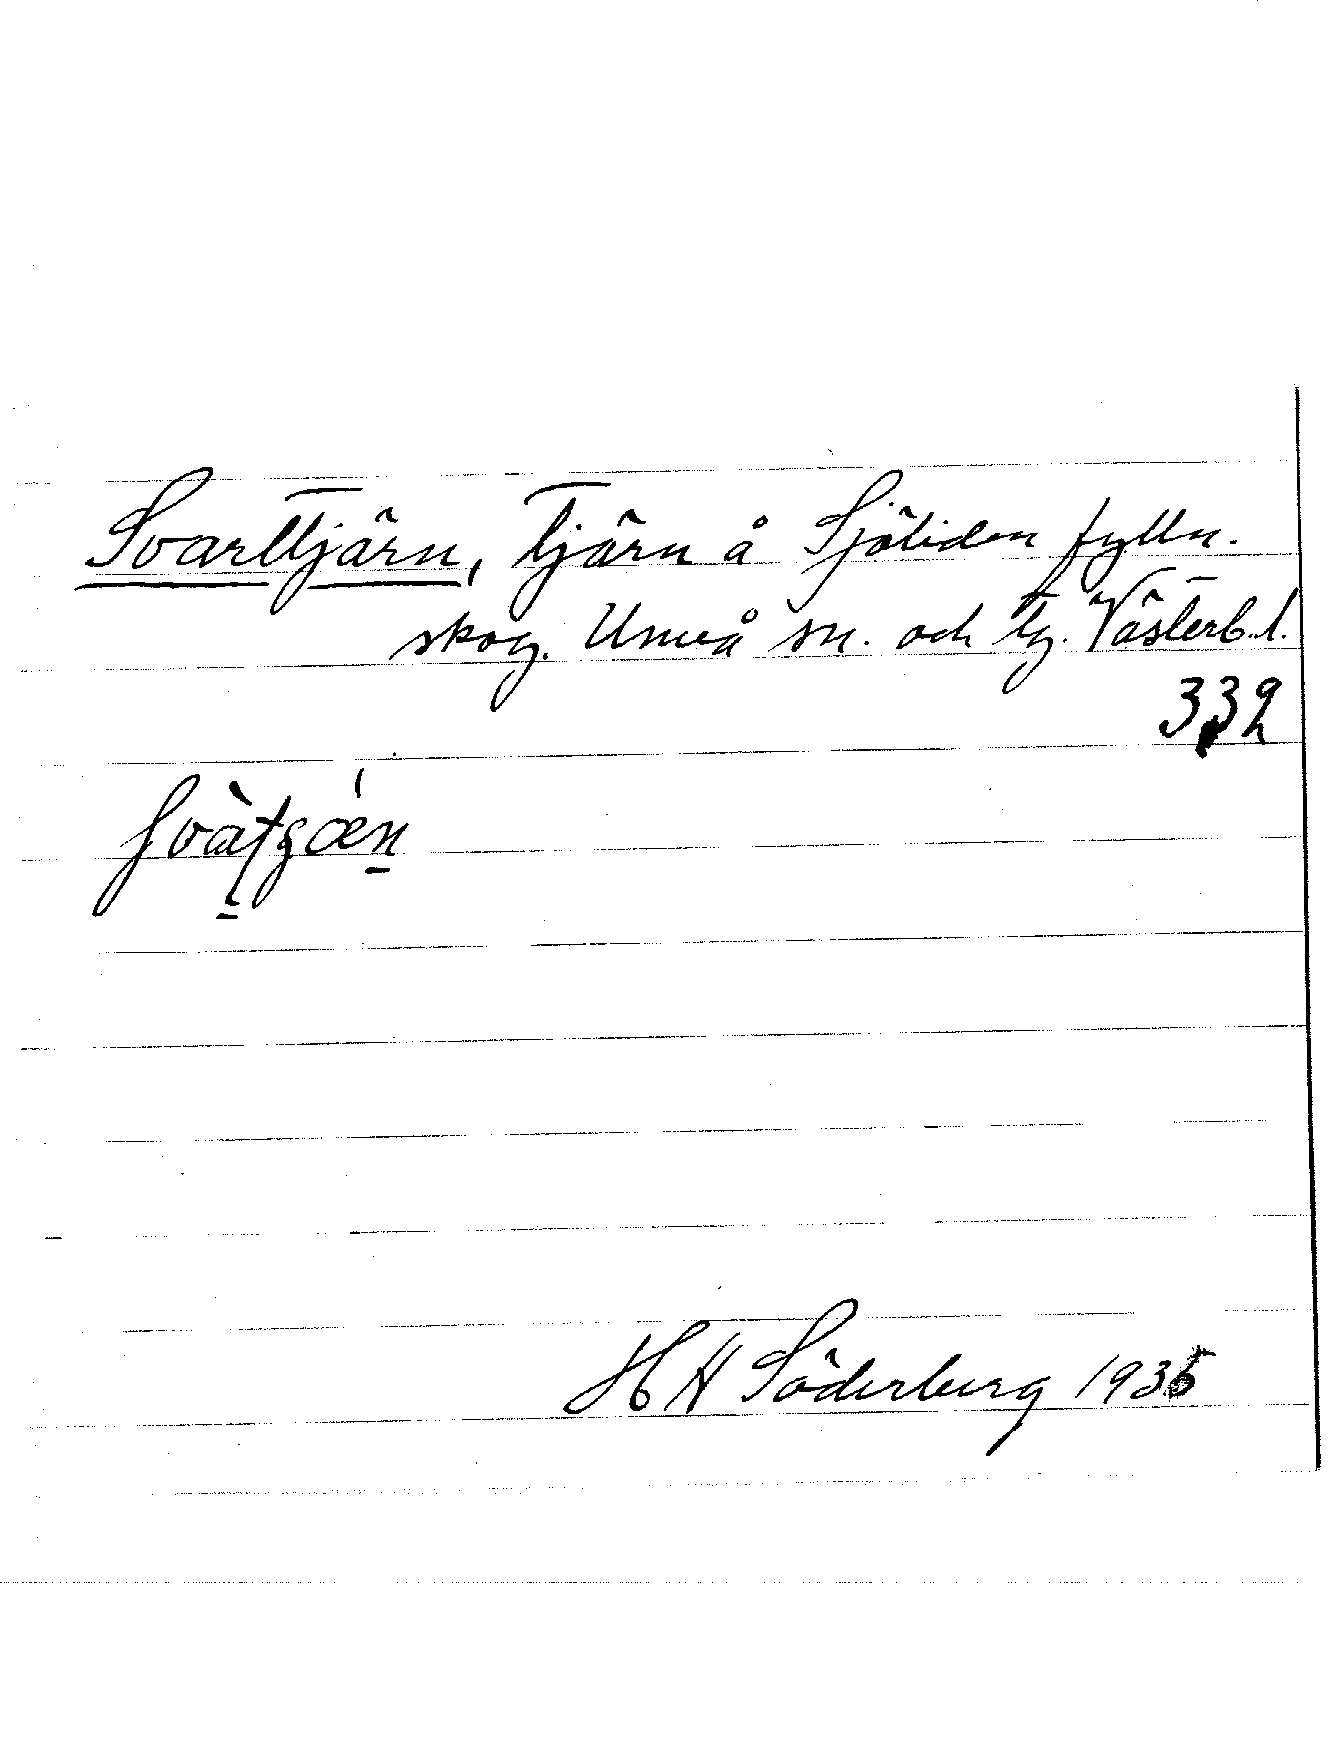 Svarttjärn, Tjärn å Sjöliden fylln.
skog. Umeå sn. och tg. Västerb. l.
332
HH Söderberg 1935